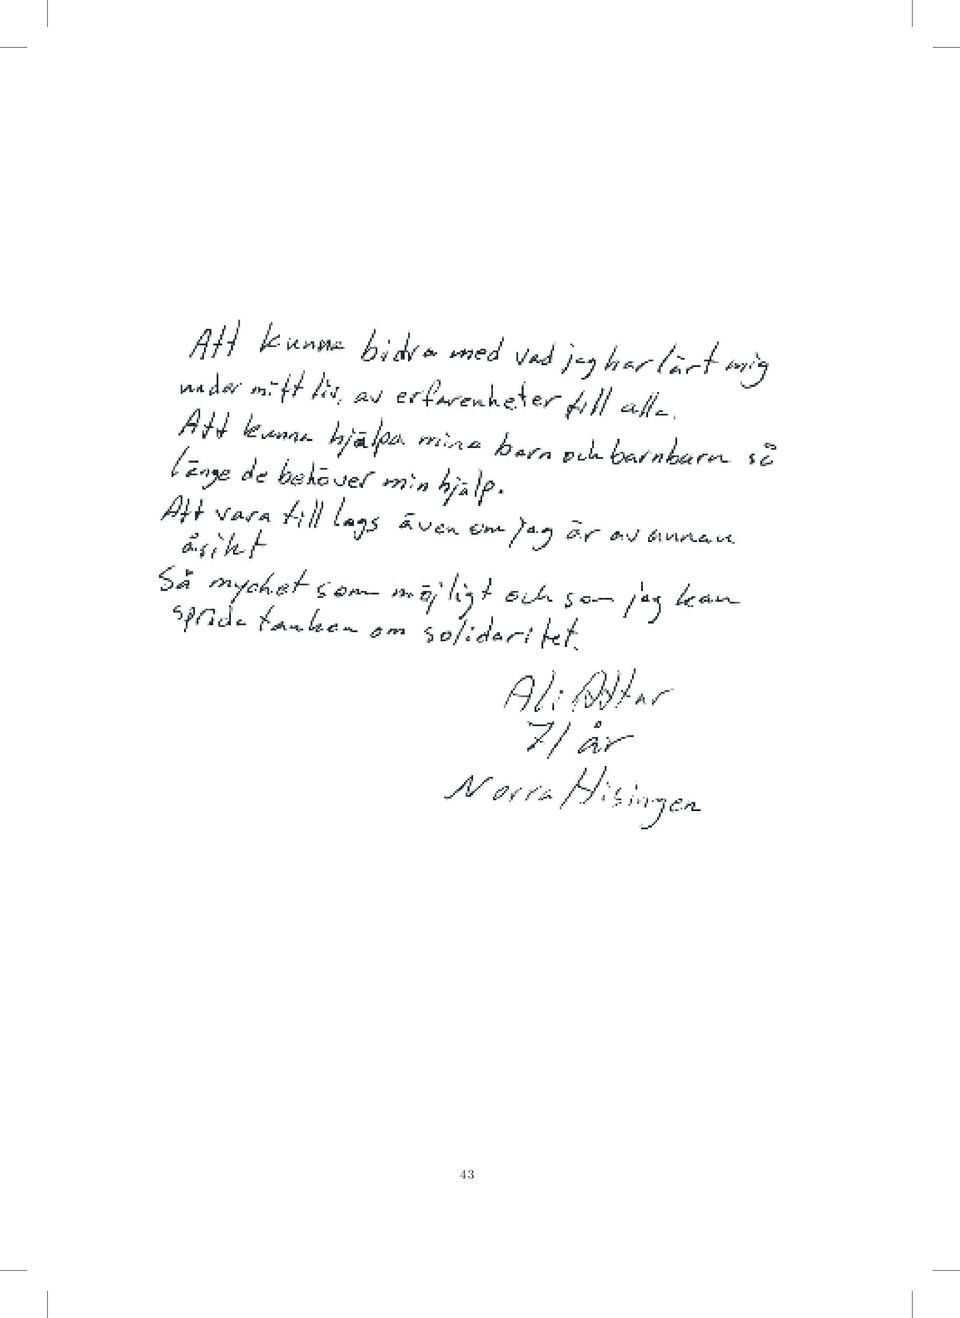 Att kunna bidra med vad jag har lärt mig
under mitt liv, av erfarenheter till alla.
Att kunna hjälpa mina barn och barnbarn så
länge de behöver min hjälp.
Att vara till lags även om jag är av annan
åsikt
Så mychet som möjligt och som jag kan
sprida tanken om solidaritet.
Ali Attar
71 år
Norra Hisingen
43